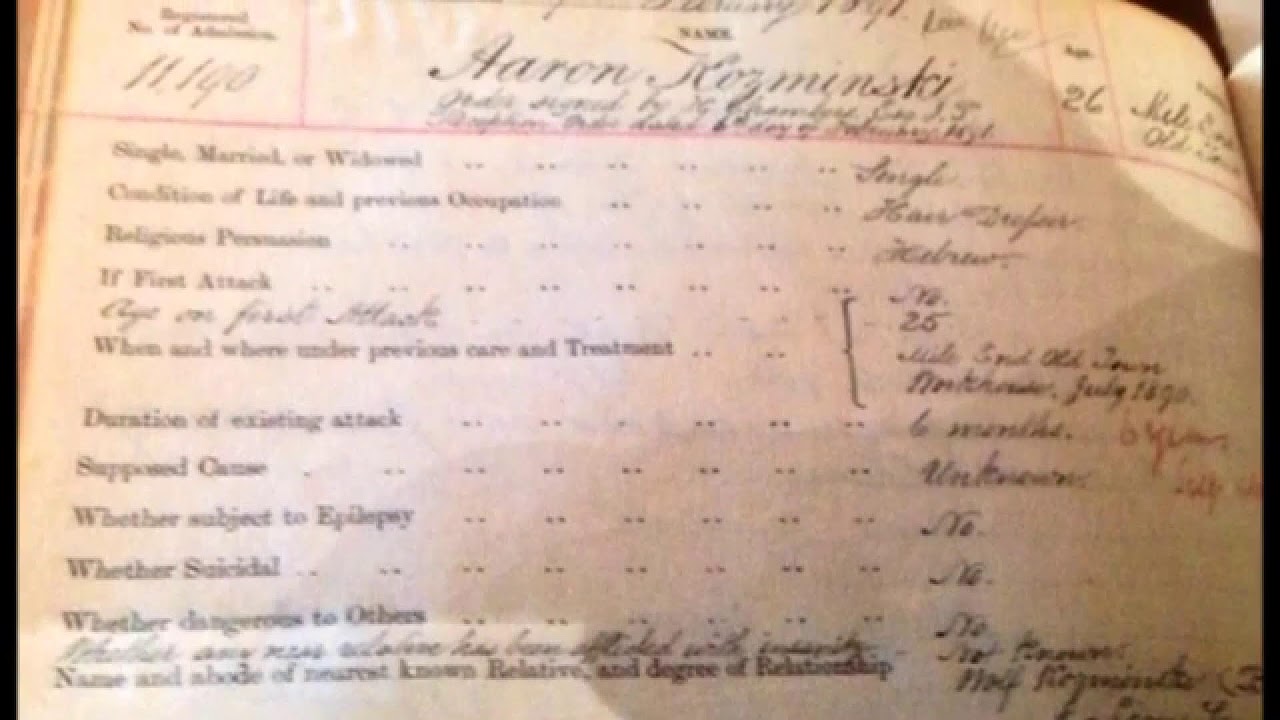 February 1891.
Registered
No. of Admission. NAME Age
11,190 Aaron Kozminski 26 Mile End
Order signed by H Chambers Esq J.P. Old Town
Reception Order dated 6th day of February 1891
Single, Married, or Widowed .. .. .. .. .. .. Single
Condition of Life and previous Occupation .. .. .. .. Hair Dresser
Religious Persuasion .. .. .. .. .. .. .. Hebrew.
If First Attack .. .. .. .. .. .. .. .. No.
Age on first Attack 25
When and where under previous care and Treatment .. .. Mile End Old Town
Workhouse, July 1890.
Duration of existing attack .. .. .. .. .. .. 6 months. 6 years
Supposed Cause .. .. .. .. .. .. .. Unknown.
Whether subject to Epilepsy .. .. .. .. .. .. No.
Whether Suicidal .. .. .. .. .. .. .. .. No.
Whether dangerous to Others .. .. .. .. .. .. No
Whether any near relative has been afflicted with insanity Not Known.
Name and abode of nearest known Relative, and degree of Relationship Wolf Kozminski